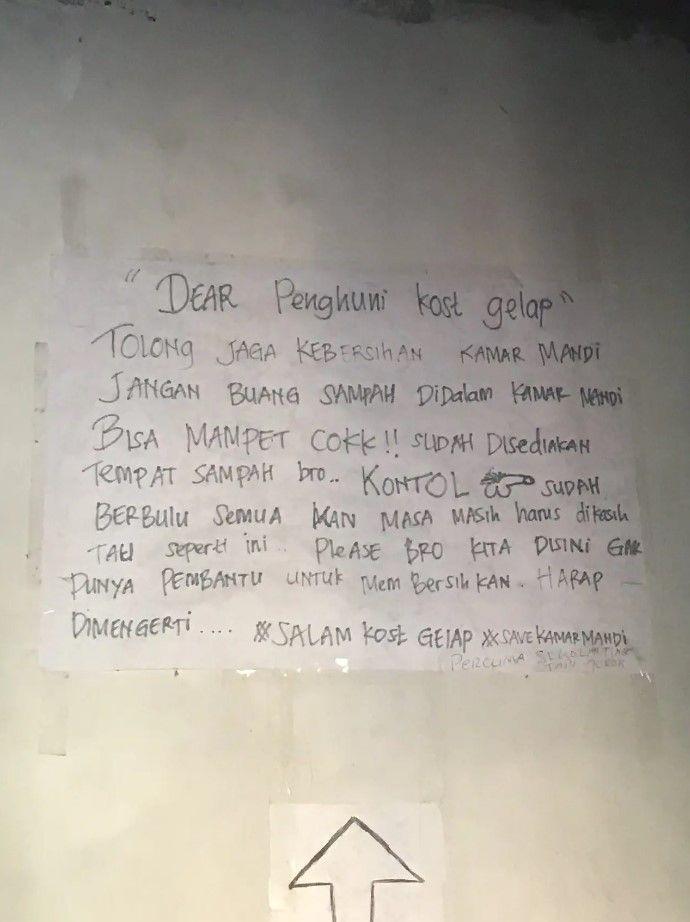 "DEAR Penghuni kost gelap"
TOLONG JAGA KEBERSIHAN KAMAR MANDI
JANGAN BUANG SAMPAH DiDalam KAMAR MANDI
BISA MAMPET COKK!! SUDAH DISEDIAKAN
TEMPAT SAMPAH bro.. KONTOL SUDAH
BERBULU SEMUA KAN MASA MASIH harus dikasih
TAU seperti ini.. PLeASE BRO KITA DISINI GAK
PUNYA PEMBANTU UNTUK MemBersiHKAN. HARAP
DIMENGERTI.... #SALAM KOST GELAP #SAVEKAMARMANDI
PERCUMA